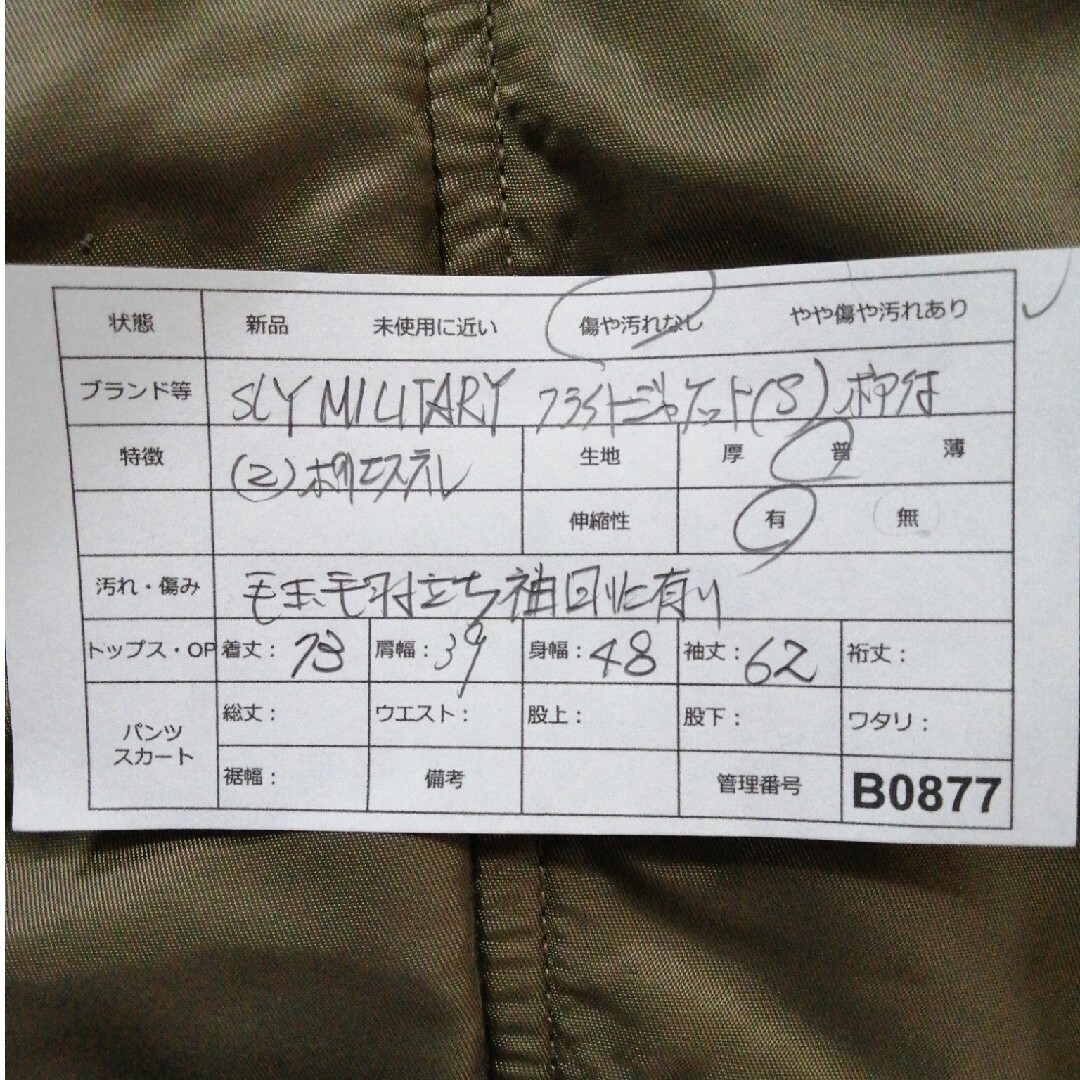 状態 新品 未使用に近い 傷や汚れなし やや傷や汚れあり
ブランド等 SLY MILITARY フライトジャケット(S)ボア付
特徴 (2)ポリエステル 生地 厚 普 薄
伸縮性 有 無
汚れ・傷み 毛玉、毛羽立ち袖回りに有り
トップス・OP 着丈: 73 肩幅: 39 身幅: 48 袖丈: 62 裄丈:
パンツ スカート 総丈: ウエスト: 股上: 股下: ワタリ:
裾幅: 備考 管理番号 B0877